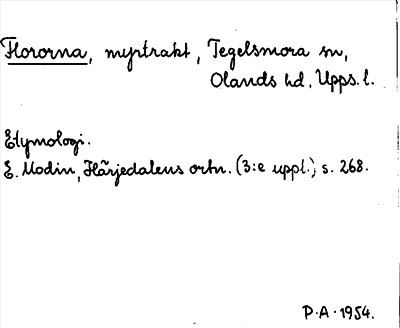 Flororna, myrtrakt, Tegelsmora sn,
Olands hd, Upps. l.
Etymologi.
E. Modin, Härjedalens ortn. (3:e uppl.), s. 268.
P·A·1954.